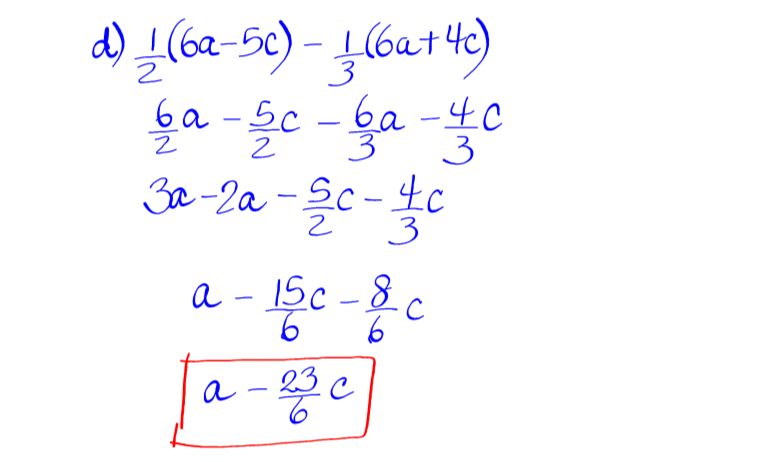 d) 1/2(6a-5c) - 1/3(6a+4c)
6/2a - 5/2c - 6/3a - 4/3c
3a-2a - 5/2c - 4/3c
a - 15/6c - 8/6c
a - 23/6c